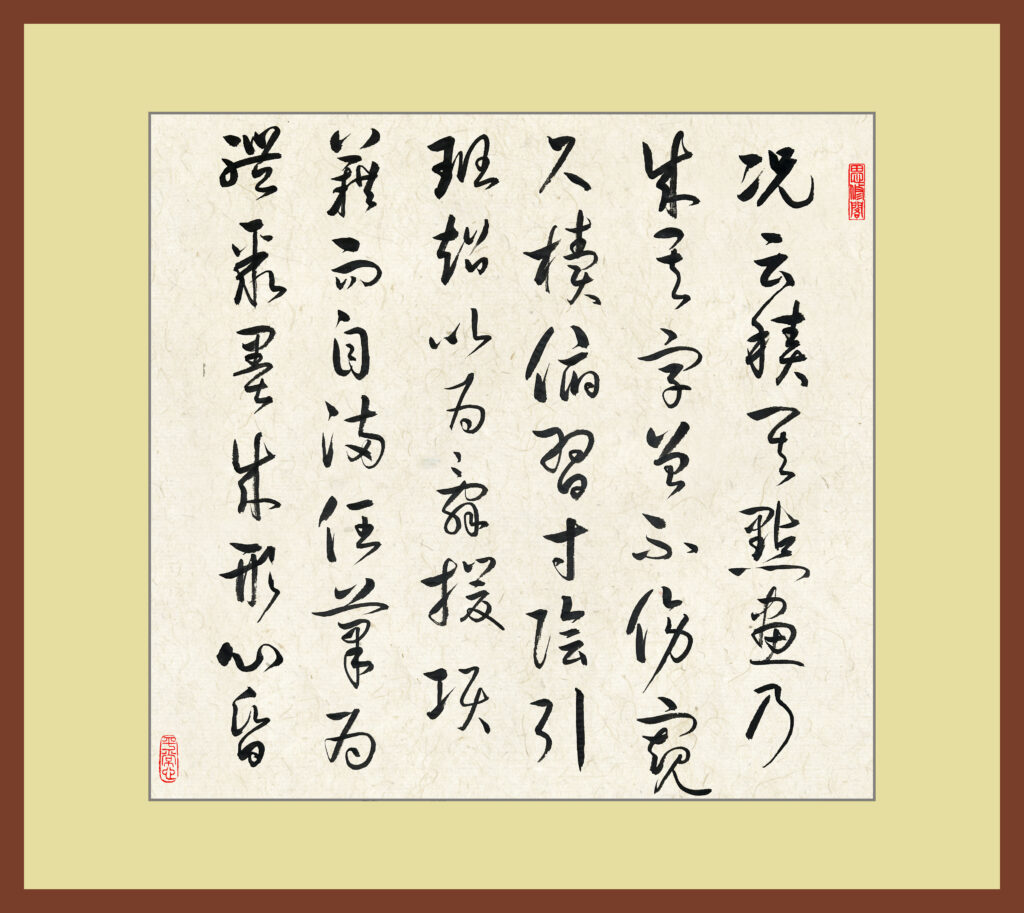 思修閣
况云積其點畫乃
成其字曾不傍窺
尺牘俯習寸陰引
班超以為辭援項
籍而自滿任筆為
體聚墨成形心昏
平常心